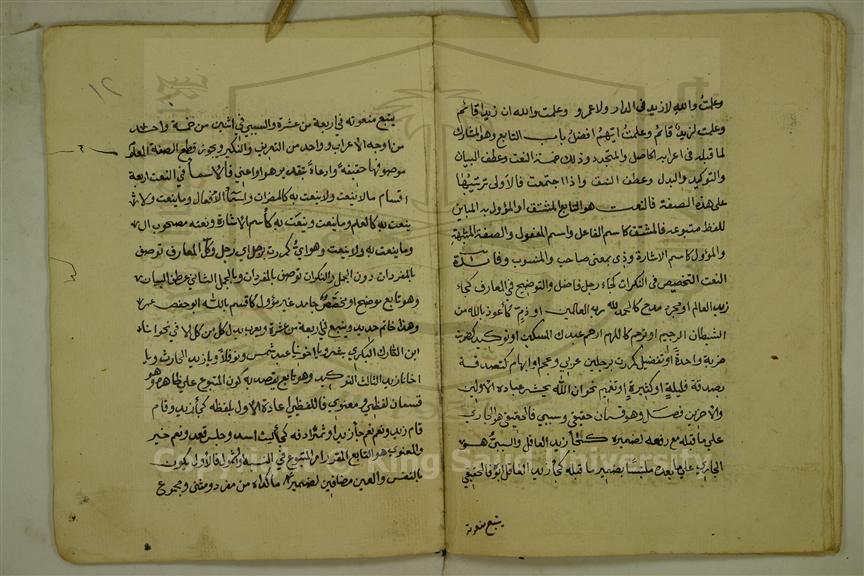 وعلمتُ والله لا زيد في الدار ولا عمرو وعلمت والله ان زيدا قائم
وعلمت لزيدٌ قائم وعلمتُ ايّهم افضل باب التابع وهو المشارك
لما قبله في اعرابه الحاصل والمتجدد وذلك خمسة النعت وعطف البيان
والتوكيد والبدل وعطف النسق واذا اجتمعت فالاولى ترتيبها
على هذه الصفة فالنعت هو التابع المشتق او المؤول به المباين
للفظ متبوعه فالمشتق كاسم الفاعل واسم المفعول والصفة المشبهة
والمؤول كاسم الاشارة وذي بمعنى صاحب والمنسوب وفائدة
النعت التخصيص في النكرات كجاء رجل فاضل والتوضيح في المعارف كجاء
زيد العالم او مجرد مدح كالحمد لله رب العالمين او ذم كأعوذ بالله من
الشيطان الرجيم او ترحم كاللهم ارحم عبدك المسكين او توكيد كضربت
ضربة واحدة او تفضيل كمررت برجلين عربي وعجمي او ابهام كتصدقت
بصدقة قليلة او كثيرة او تعميم نحو ان الله يحشر عباده الاولين
والاخرين فصل وهو قسمان حقيقي وسببي فالحقيقي هو الجاري
على ما قبله مع رفعه لضميره كجاء زيد العاقل والسببي هو
الجاري على ما بعده ملتبسا بضمير ما قبله كجاء زيد العاقل ابوه فالحقيقي
يتبع منعوته
١٢
يتبع منعوته في اربعة من عشرة والسببي في اثنين من خمسة واحد
من اوجه الاعراب وواحد من التعريف والتنكير ويجوز قطع الصفة المعلوم
موصوفها حقيقة او ادعاء بتقدير هو او اعني فالاسماء في النعت اربعة
اقسام ما لا ينعت ولا ينعت به كالمضمرات واسماء الافعال وما ينعت ولا
ينعت به كالعلم وما ينعت وينعت به كأسم الاشارة ونعته مصحوب ال
وما ينعت به ولا ينعت وهو اي كمررت برجل اي رجل وكل المعارف توصف
بالمفردات دون الجمل والنكرات توصف بالمفردات وبالجمل الثاني عطف البيان
وهو تابع موضح او مخصص جامد غير مؤول كاقسم بالله ابو حفص عمر
وهذا خاتم حديد ويتبع في اربعة من عشرة ويعرب بدل كل من كل الا في نحو انا
ابن التارك البكري بشر ويا اخوينا عبد شمس ونوفلا ويا زيد الحارث ويا
اخانا زيدا الثالث التوكيد وهو تابع يقصد به كون المتبوع على ظاهره وهو
قسمان لفظي ومعنوي فاللفظي اعادة الاول بلفظه كجاء زيد وقام
قام زيد ونعم نعم جاء زيد او بمرادفه كرأيت اسد وجلس قعد ونعم جير
والمعنوي هو التابع المقرر امر المتبوع في النسبة والشمول فالاول يكون
بالنفس والعين مضافين لضمير ما اكداه من مفرد ومثنى ومجموع
Copyright © King Saud University